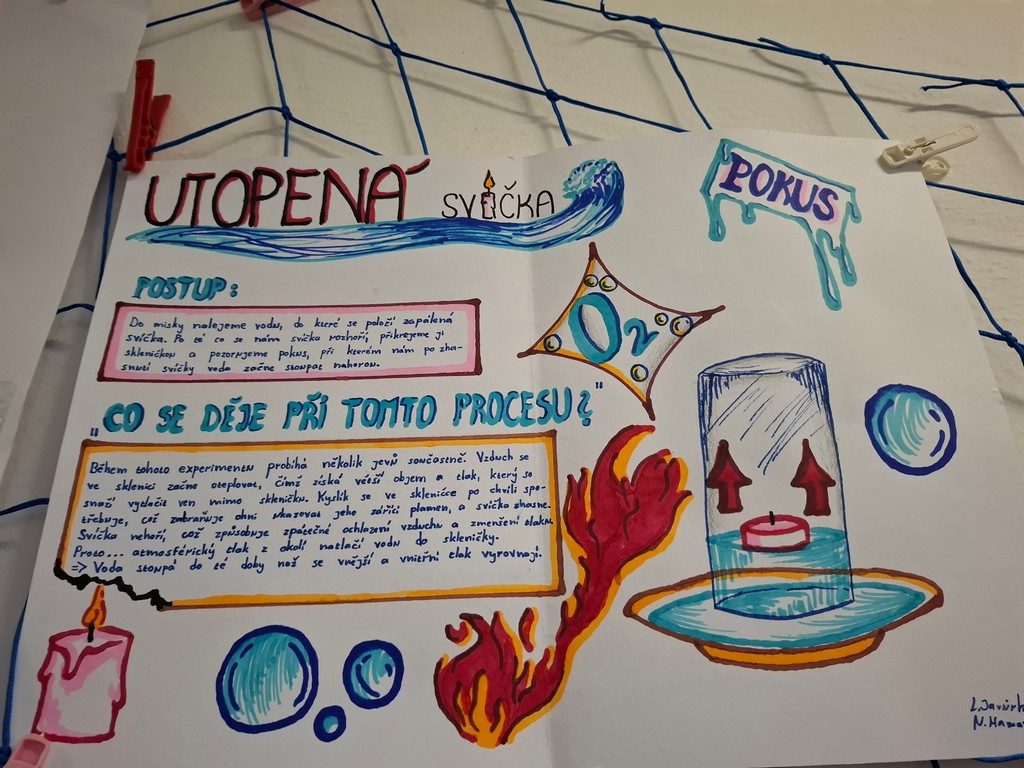 UTOPENÁ SVÍČKA
POKUS
POSTUP:
Do misky nalejeme vodu, do které se položí zapálená
svíčka. Po té co se nám svíčka rozhoří, přikrejeme ji
skleničkou a pozorujeme pokus, při kterém nám po zha-
snutí svíčky voda začne stoupat nahoru.
O2
"CO SE DĚJE PŘI TOMTO PROCESU?"
Během tohoto experimentu probíhá několik jevů současně. Vzduch se
ve sklenici začne oteplovat, čímž získá větší objem a tlak, který se
snaží vytlačit ven mimo skleničku. Kyslík se ve skleničce po chvíli spo-
třebuje, což zabraňuje ohni ukazovat jeho zářící plamen, a svíčka zhasne.
Svíčka nehoří, což způsobuje zpátečné ochlazení vzduchu a zmenšení tlaku.
Proto... atmosférický tlak z okolí natlačí vodu do skleničky.
=> Voda stoupá do té doby než se vnější a vnitřní tlak vyrovnají.
N. Hama